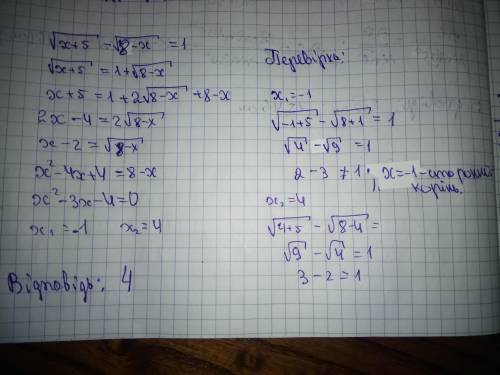 √x+5 - √8-x = 1
√x+5 = 1+√8-x
x+5 = 1+2√8-x +8-x
2x-4 = 2√8-x
x-2 = √8-x
x²-4x+4 = 8-x
x²-3x-4=0
x₁ = -1 x₂ = 4
Відповідь: 4
Перевірка:
x₁ = -1
√-1+5 - √8+1 = 1
√4 - √9 = 1
2-3 ≠ 1; x=-1 - сторонній
корінь.
x₂ = 4
√4+5 - √8-4 =
√9 - √4 = 1
3-2 = 1